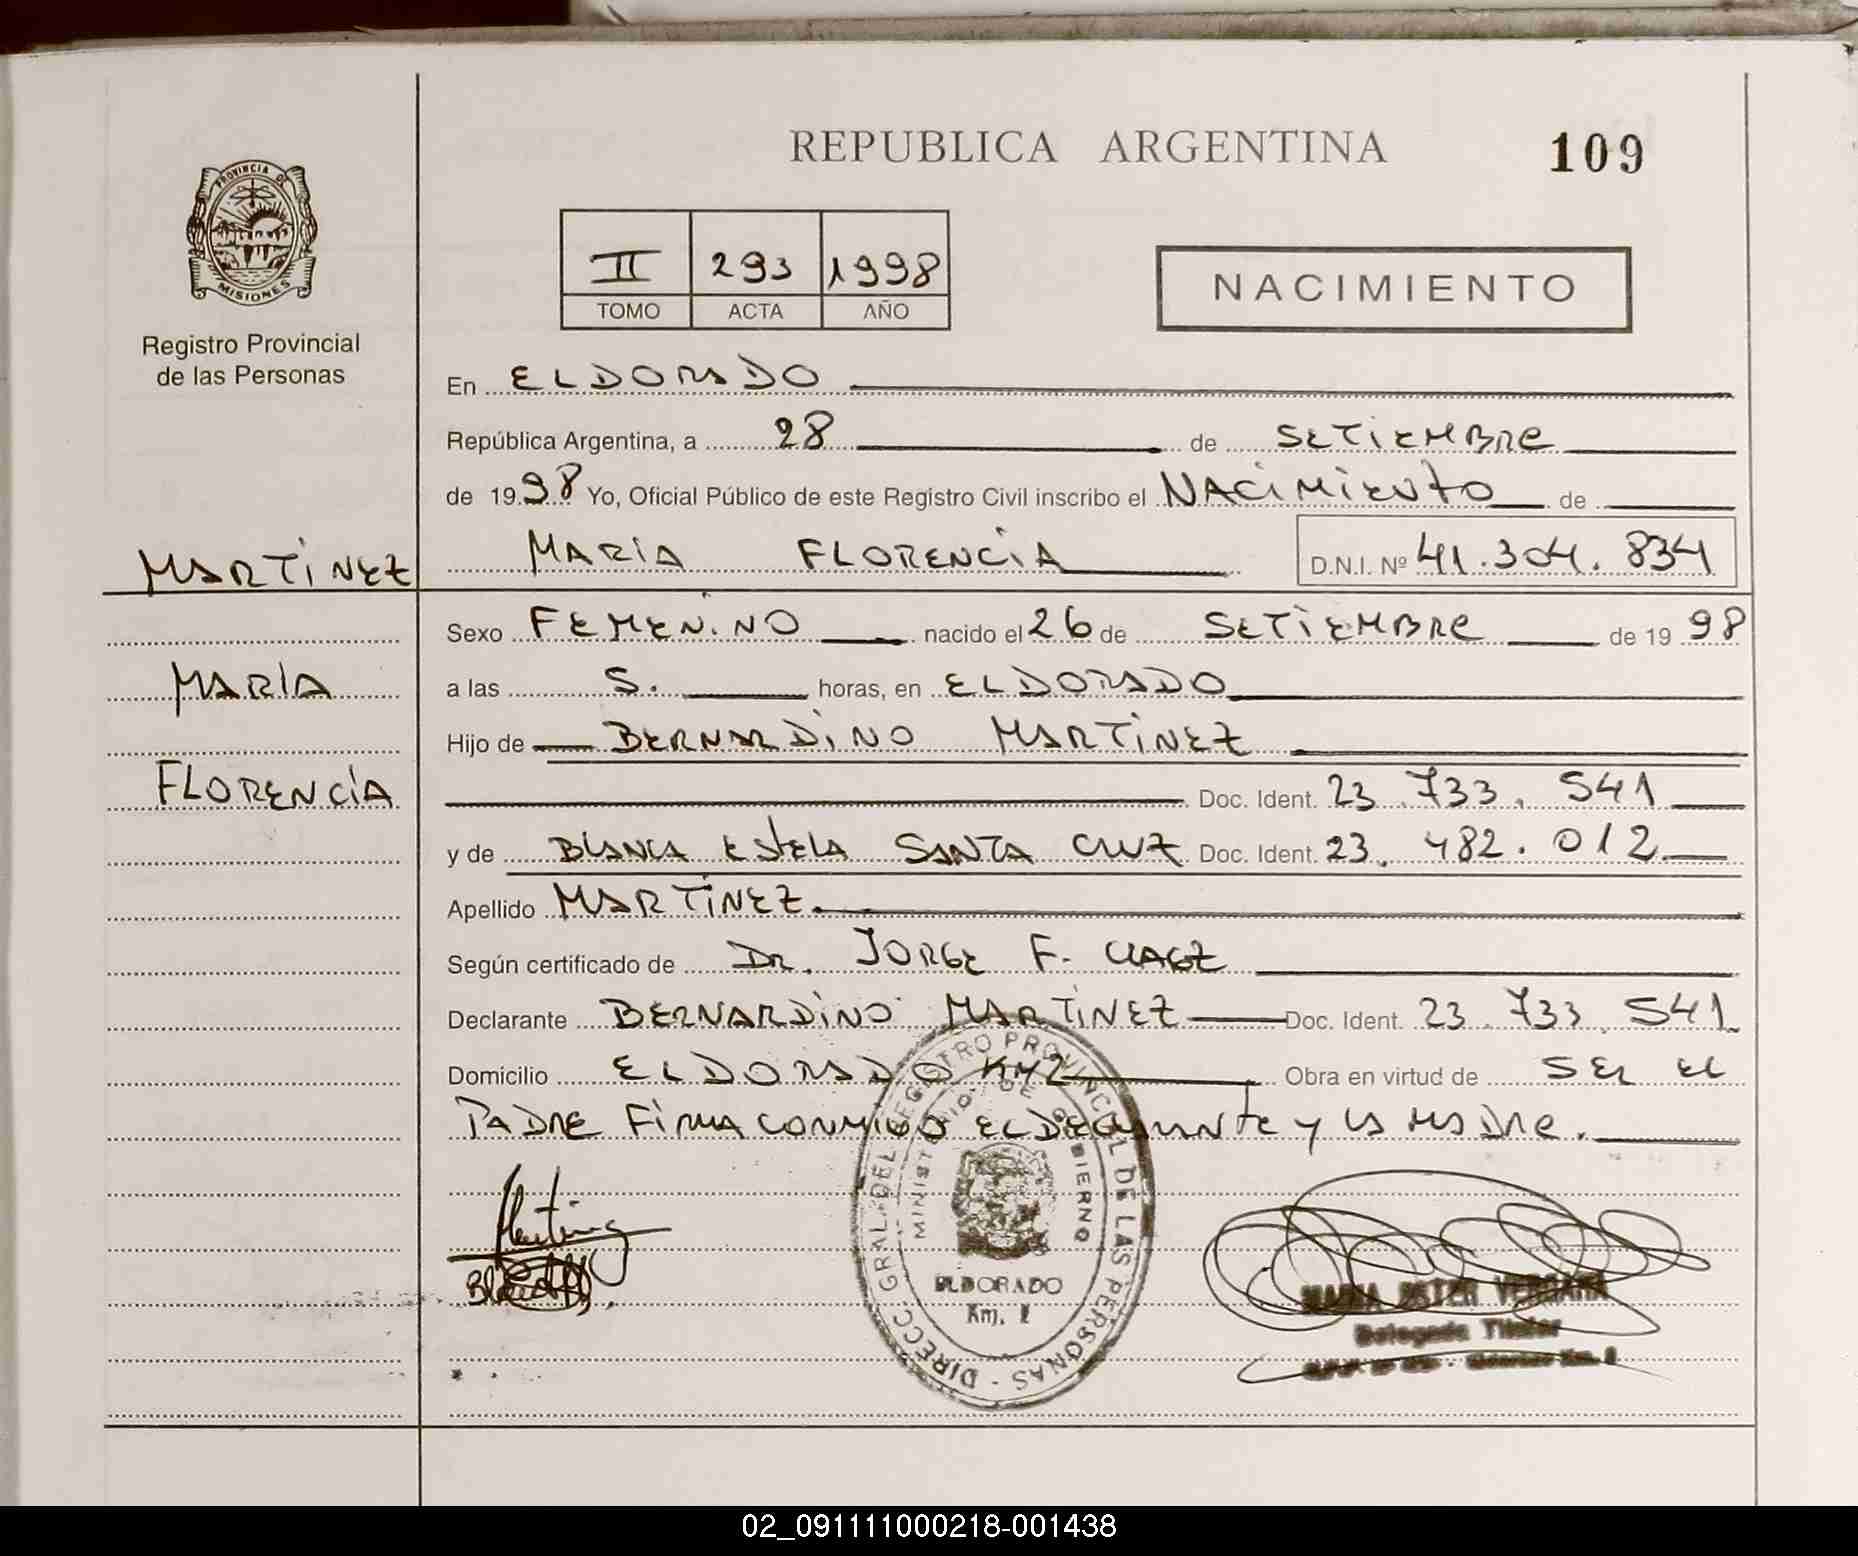 REPUBLICA ARGENTINA
109
PROVINCIA DE
MISIONES
Registro Provincial
de las Personas
II 293 1998
TOMO ACTA AÑO
NACIMIENTO
En ELDORADO
República Argentina, a 28 de SETIEMBRE
de 1998 Yo, Oficial Público de este Registro Civil inscribo el NACIMIENTO de
MARTINEZ
MARIA FLORENCIA D.N.I. Nº 41.304.834
Sexo FEMENINO nacido el 26 de SETIEMBRE de 1998
MARIA
a las 5. horas, en ELDORADO
Hijo de BERNARDINO MARTINEZ
FLORENCIA
Doc. Ident. 23.733.541
y de BLANCA ESTELA SANTA CRUZ Doc. Ident. 23.482.012
Apellido MARTINEZ.
Según certificado de DR. JORGE F.
Declarante BERNARDINO MARTINEZ Doc. Ident. 23.733.541
Domicilio ELDORADO KM2 Obra en virtud de SER EL
PADRE FIRMA CONMIGO EL DECLARANTE Y LA MADRE.
DIRECC. GRAL. DEL REGISTRO PROVINCIAL DE LAS PERSONAS -
MINISTERIO DE GOBIERNO
ELDORADO
Km.
MARIA ESTER VERGARA
Delegada Titular
02_091111000218-001438